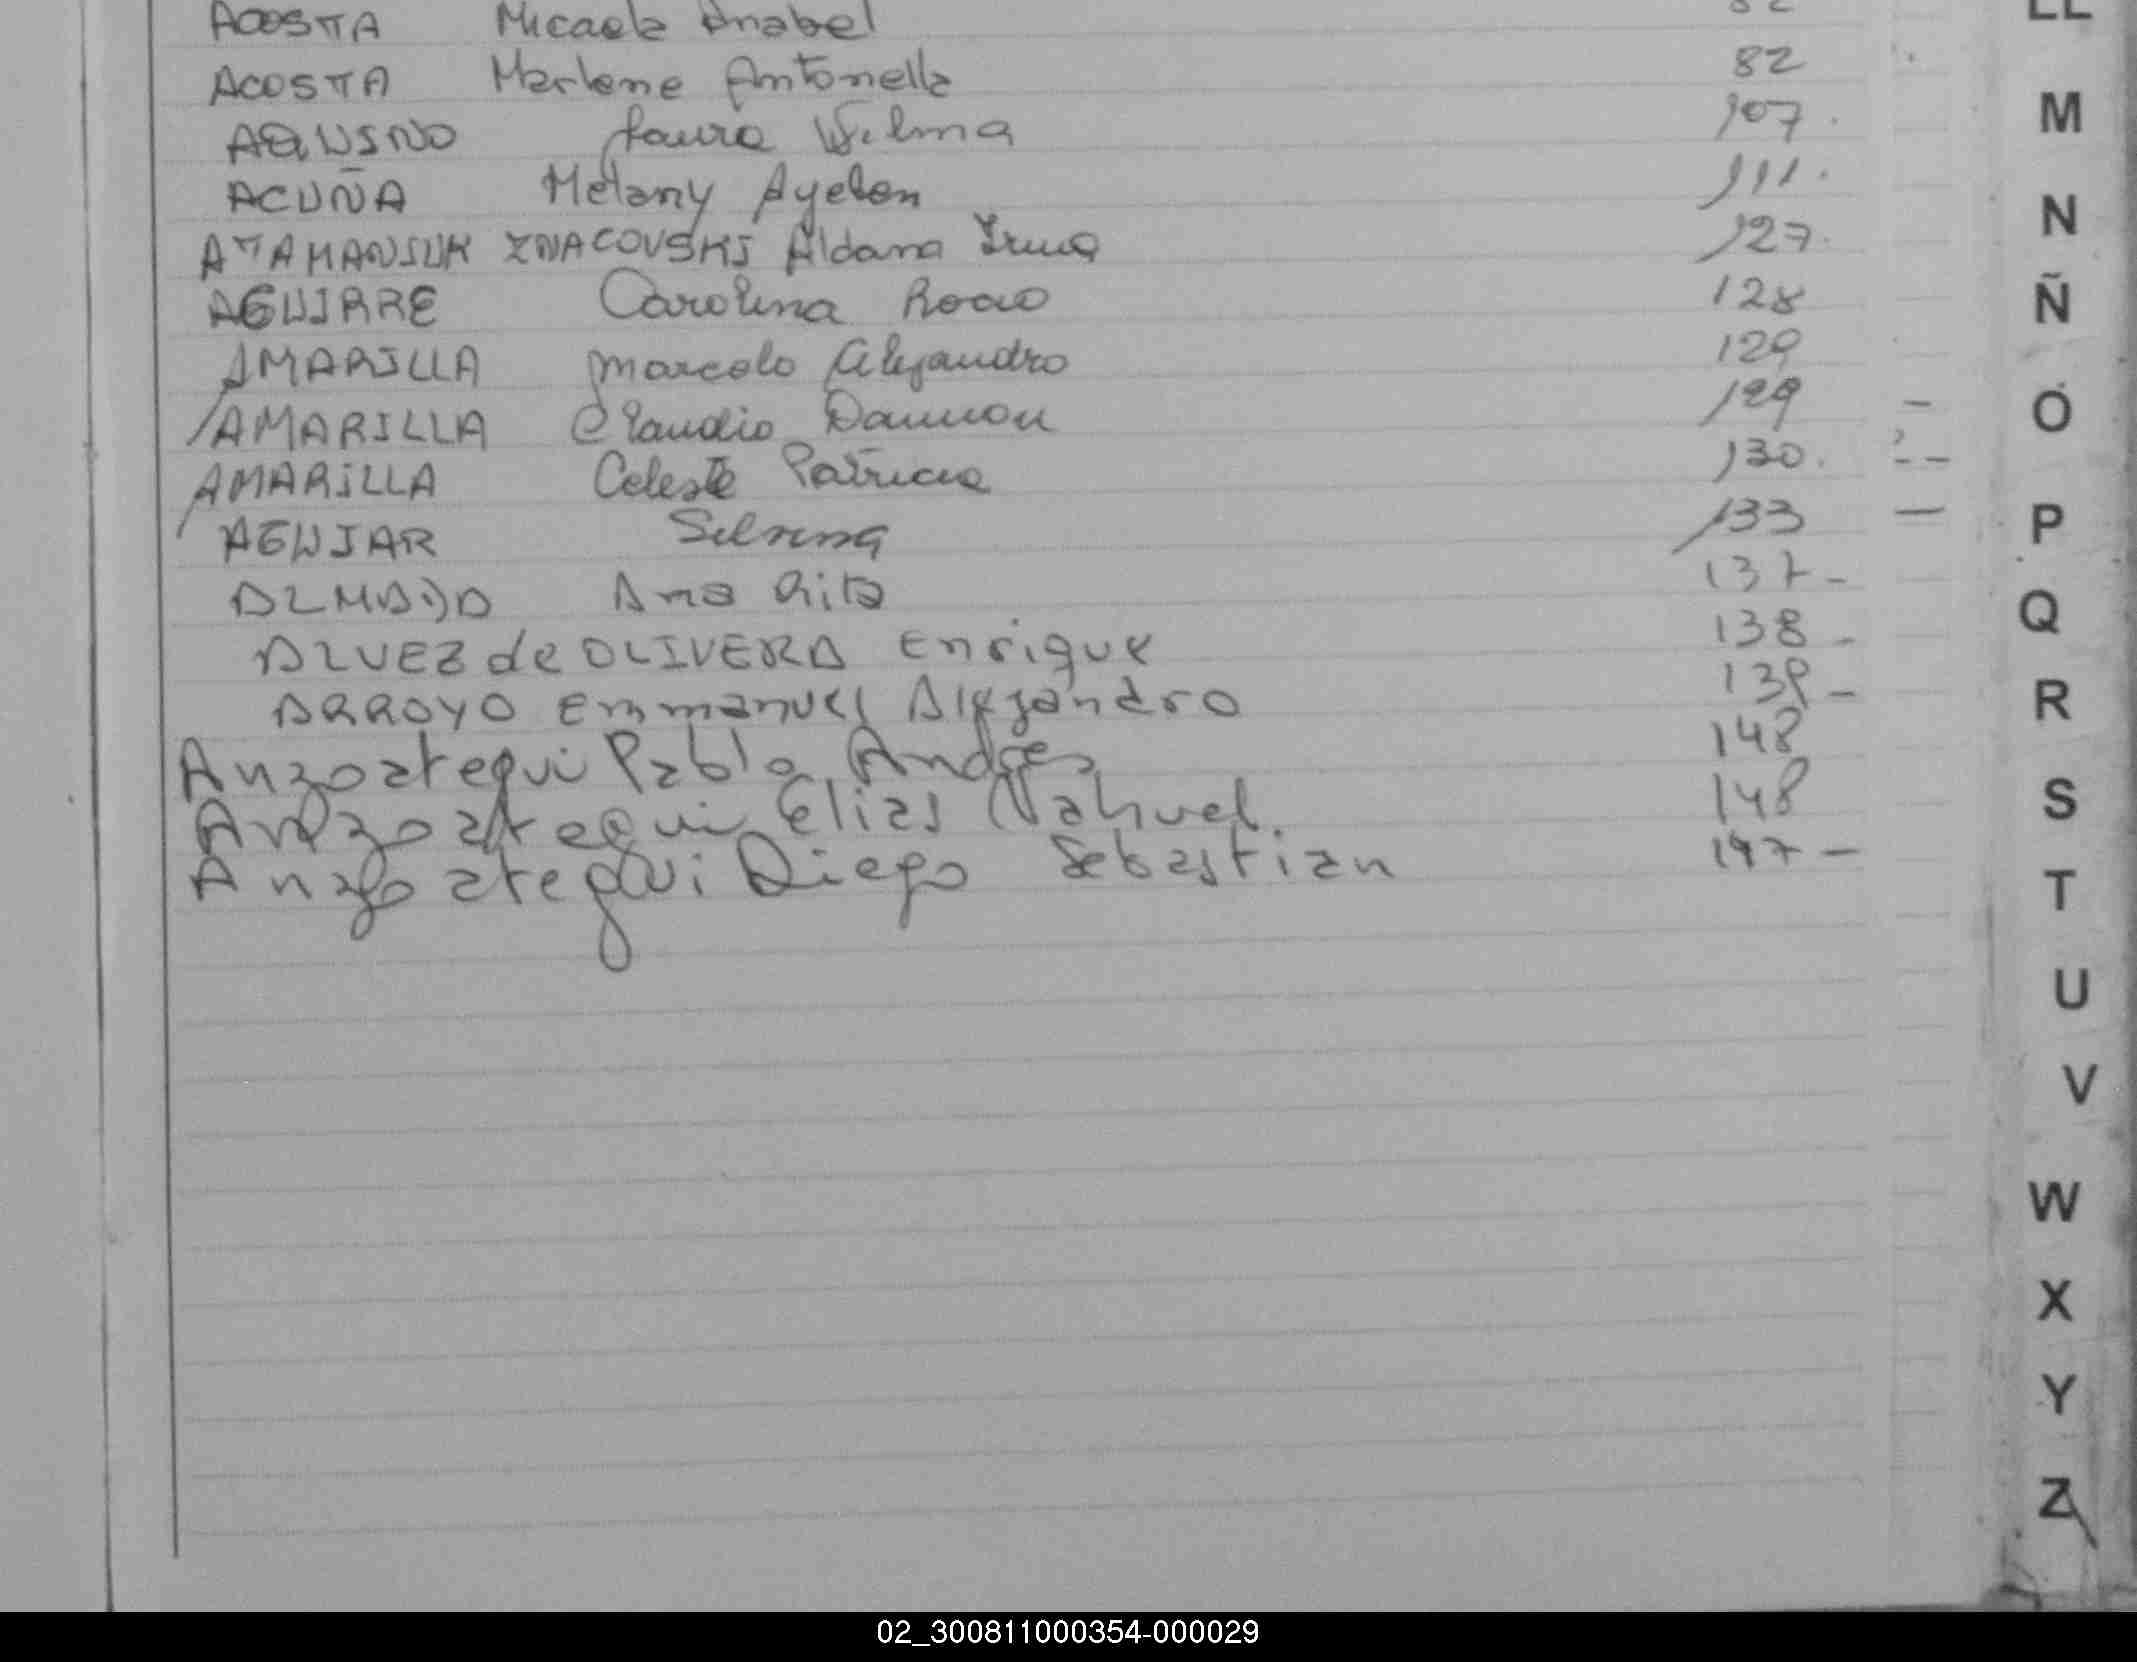 ACOSTA Micaela Anabel 82
ACOSTA Marlene Antonella 82
AQUINO Laura Vilma 107.
ACUÑA Melany Ayelen 111.
ATAMANIUK ZNACOVSKI Aldana Irina 127.
AGUIRRE Carolina Rocio 128
AMARILLA Marcelo Alejandro 129
AMARILLA Claudio Damian 129
AMARILLA Celeste Patricia 130.
AGUIAR Silvina 133
ALMADA Ana Rita 137-
ALVEZ de OLIVERA Enrique 138-
ARROYO Emmanuel Alejandro 139-
Anzoategui Pablo Andres 148
Anzoategui Elias Nahuel. 148
Anzoategui Diego Sebastian 147-
LL
M
N
Ñ
O
P
Q
R
S
T
U
V
W
X
Y
Z
02_300811000354-000029